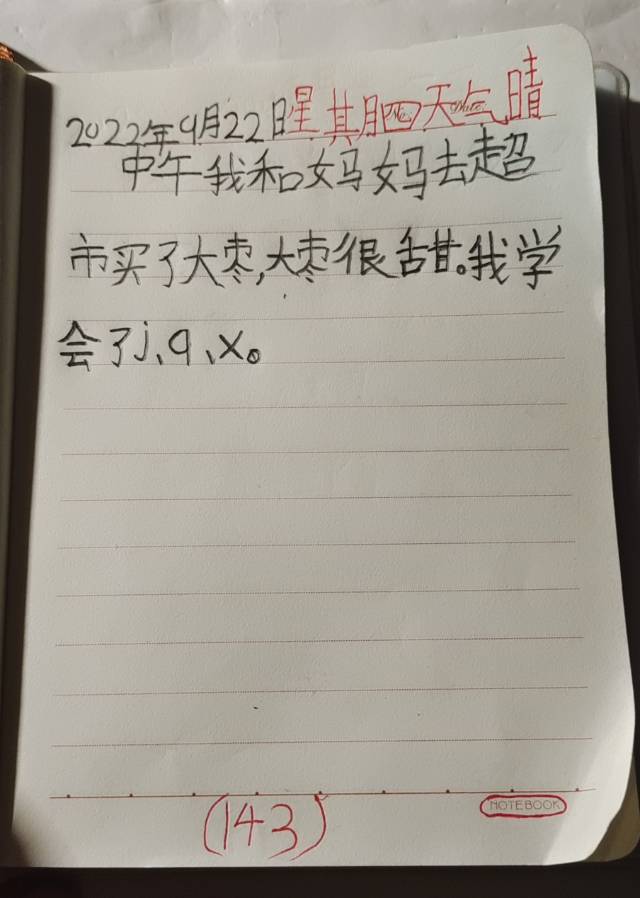 2022年9月22日星其月四天气晴
中午我和妈妈去超
市买了大枣,大枣很甜。我学
会了j、q、x。
(143)
NOTEBOOK